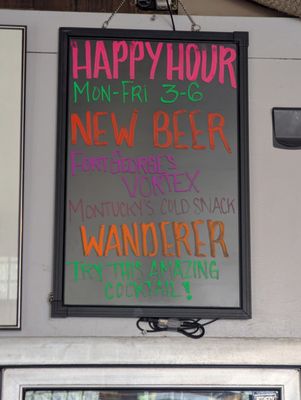 HAPPY HOUR
MON-FRI 3-6
NEW BEER
FORT GEORGE'S
VORTEX
MONTUCKY'S COLD SNACK
WANDERER
TRY THIS AMAZING
COCKTAIL!